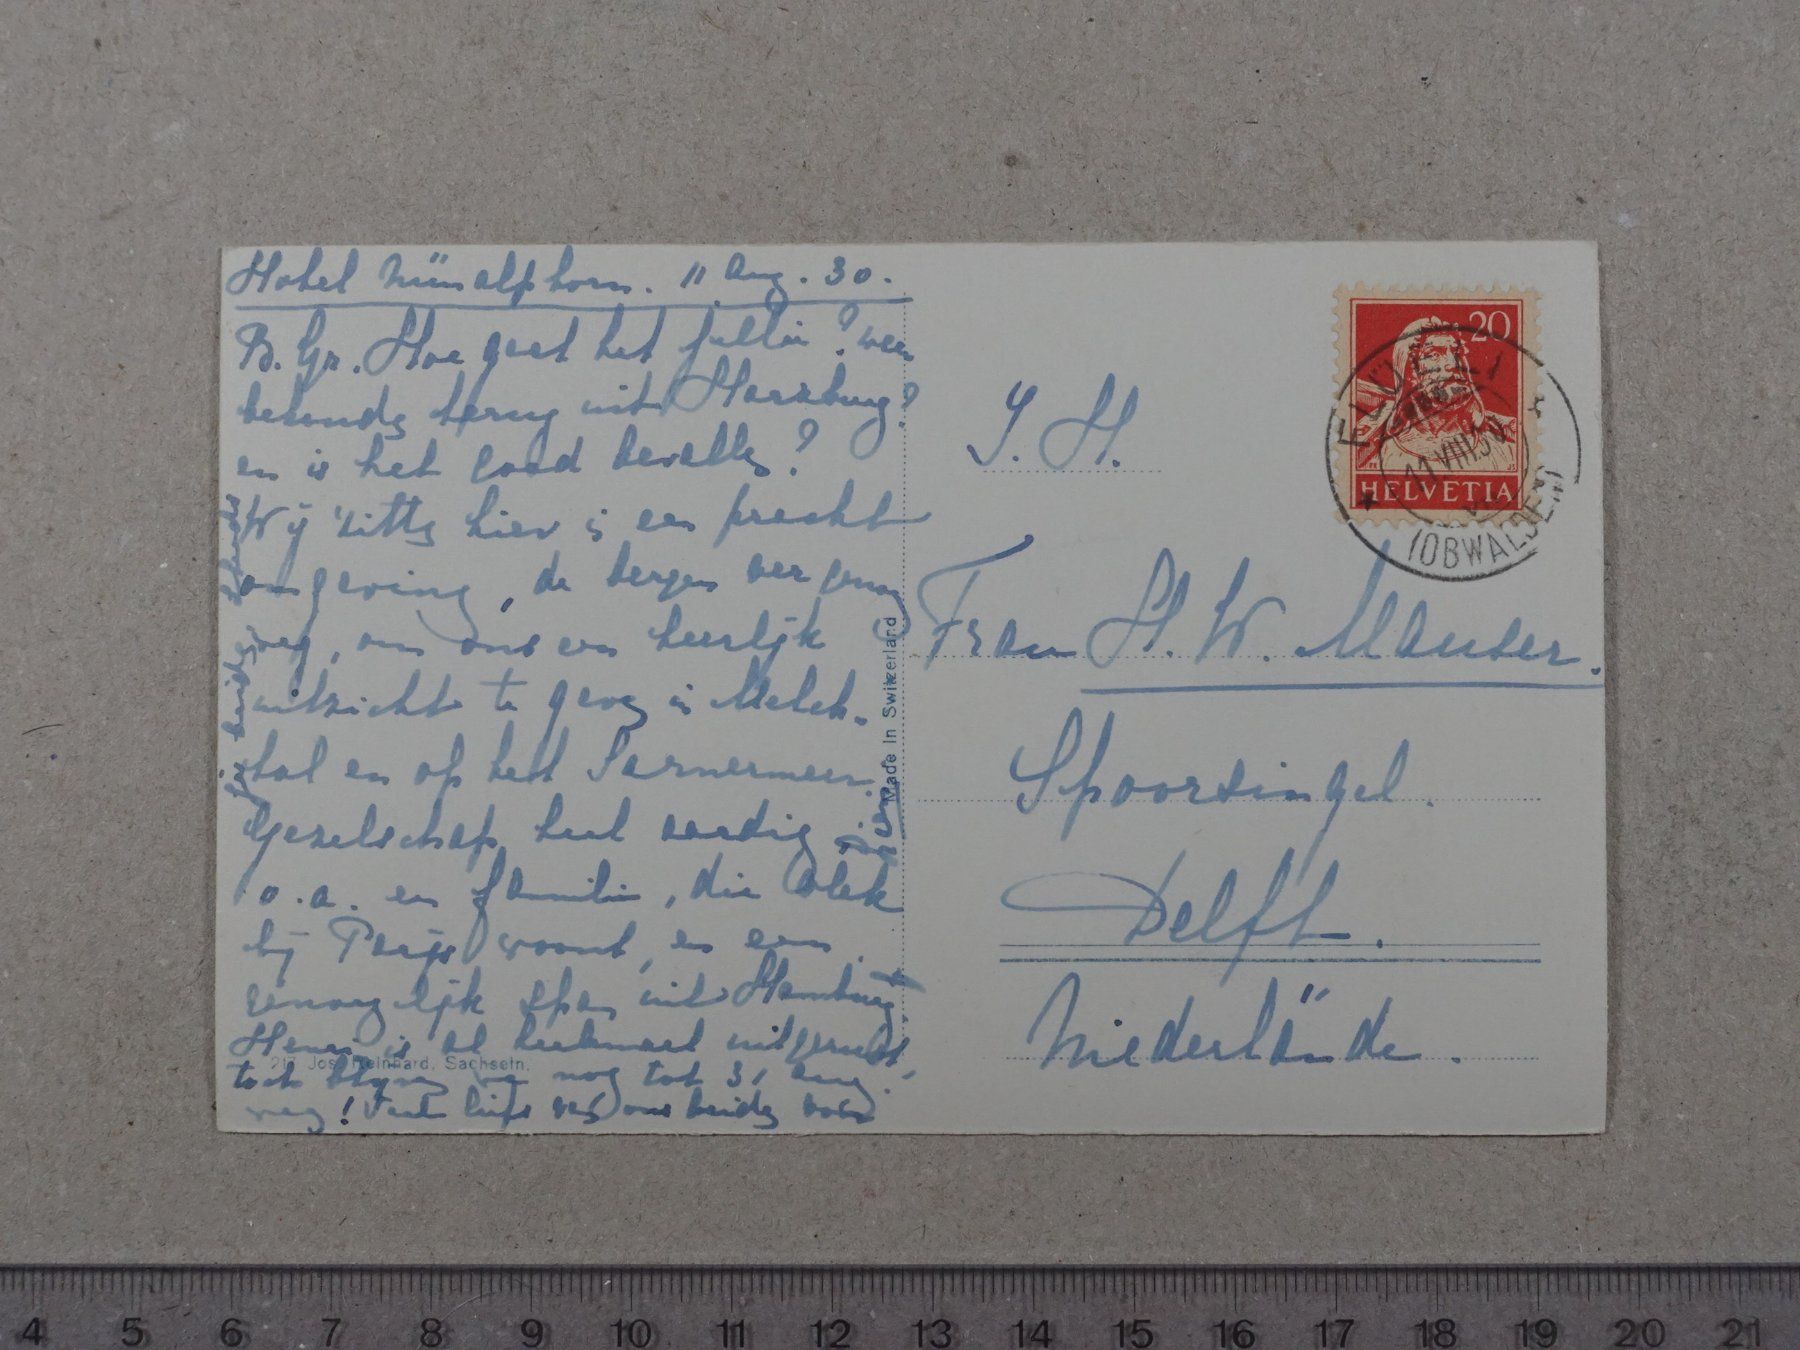 Hotel Nünalphorn. 11 Aug. 30.
B. Gr. Hoe gaat het jullie? weer
behouden terug uit Harzburg?
en is het goed bevallen?
Wij zitten hier in een pracht
omgeving, de bergen ver genoeg
weg, om ons een heerlijk
uitzicht te geven in Melch-
tal en op het Sarnermeer.
Gezelschap heel aardig
o.a. en familie, die vlak
bij Parijs woont, en een
genoegelijk span uit Hamburg
is al heelemaal uitgerust,
toch blijven we nog tot 31 Aug.
weg! Veel liefs van ons beiden voor
beiden
Made in Switzerland
217 Jos. Reinhard, Sachseln.
20
HELVETIA
FLÜELI
11 VIII 30
(OBWALDEN)
S. H.
Frau H. W. Mauser.
Spoorsingel.
Delft.
Niederlände.
4 5 6 7 8 9 10 11 12 13 14 15 16 17 18 19 20 21